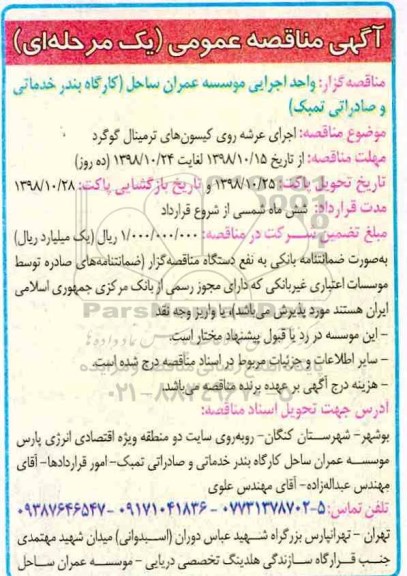 آگهی مناقصه عمومی (یک مرحله‌ای)
مناقصه‌گزار: واحد اجرایی موسسه عمران ساحل (کارگاه بندر خدماتی
و صادراتی تمبک)
موضوع مناقصه: اجرای عرشه روی کیسون‌های ترمینال گوگرد
مهلت مناقصه: از تاریخ ۱۳۹۸/۱۰/۱۵ لغایت ۱۳۹۸/۱۰/۲۴ (ده روز)
تاریخ تحویل پاکت: ۱۳۹۸/۱۰/۲۵ و تاریخ بازگشایی پاکت: ۱۳۹۸/۱۰/۲۸
مدت قرارداد: شش ماه شمسی از شروع قرارداد
مبلغ تضمین شرکت در مناقصه: ۱/۰۰۰/۰۰۰/۰۰۰ ریال (یک میلیارد ریال)
به‌صورت ضمانتنامه بانکی به نفع دستگاه مناقصه‌گزار (ضمانتنامه‌های صادره توسط
موسسات اعتباری غیربانکی که دارای مجوز رسمی از بانک مرکزی جمهوری اسلامی
ایران هستند مورد پذیرش می‌باشد)، یا واریز وجه نقد
– این موسسه در رد یا قبول پیشنهاد مختار است.
– سایر اطلاعات و جزئیات مربوط در اسناد مناقصه درج شده است.
– هزینه درج آگهی بر عهده برنده مناقصه می‌باشد.
آدرس جهت تحویل اسناد مناقصه:
بوشهر– شهرستان کنگان– روبه‌روی سایت دو منطقه ویژه اقتصادی انرژی پارس
موسسه عمران ساحل کارگاه بندر خدماتی و صادراتی تمبک– امور قراردادها– آقای
مهندس عبداله‌زاده– آقای مهندس علوی
تلفن تماس: ۵-۰۷۷۳۱۳۷۸۷۰۲ – ۰۹۱۷۱۰۴۱۸۳۶ – ۰۹۳۸۷۶۴۶۵۴۷
تهران – تهرانپارس بزرگراه شهید عباس دوران (اسبدوانی) میدان شهید مهتمدی
جنب قرارگاه سازندگی هلدینگ تخصصی دریایی – موسسه عمران ساحل